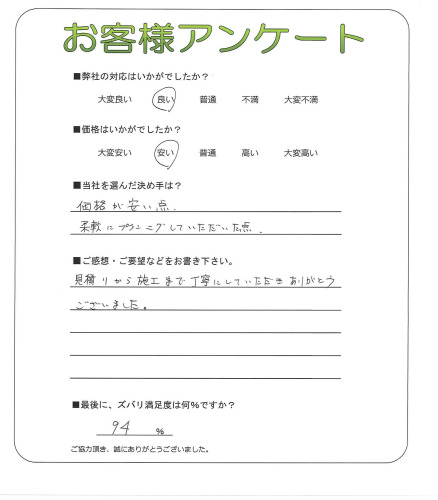 お客様アンケート
■弊社の対応はいかがでしたか？
大変良い 良い 普通 不満 大変不満
■価格はいかがでしたか？
大変安い 安い 普通 高い 大変高い
■当社を選んだ決め手は？
価格が安い点．
柔軟にプランニングしていただいた点．
■ご感想・ご要望などをお書き下さい。
見積りから施工まで丁寧にしていただきありがとう
ございました。
■最後に、ズバリ満足度は何％ですか？
94 ％
ご協力頂き、誠にありがとうございました。